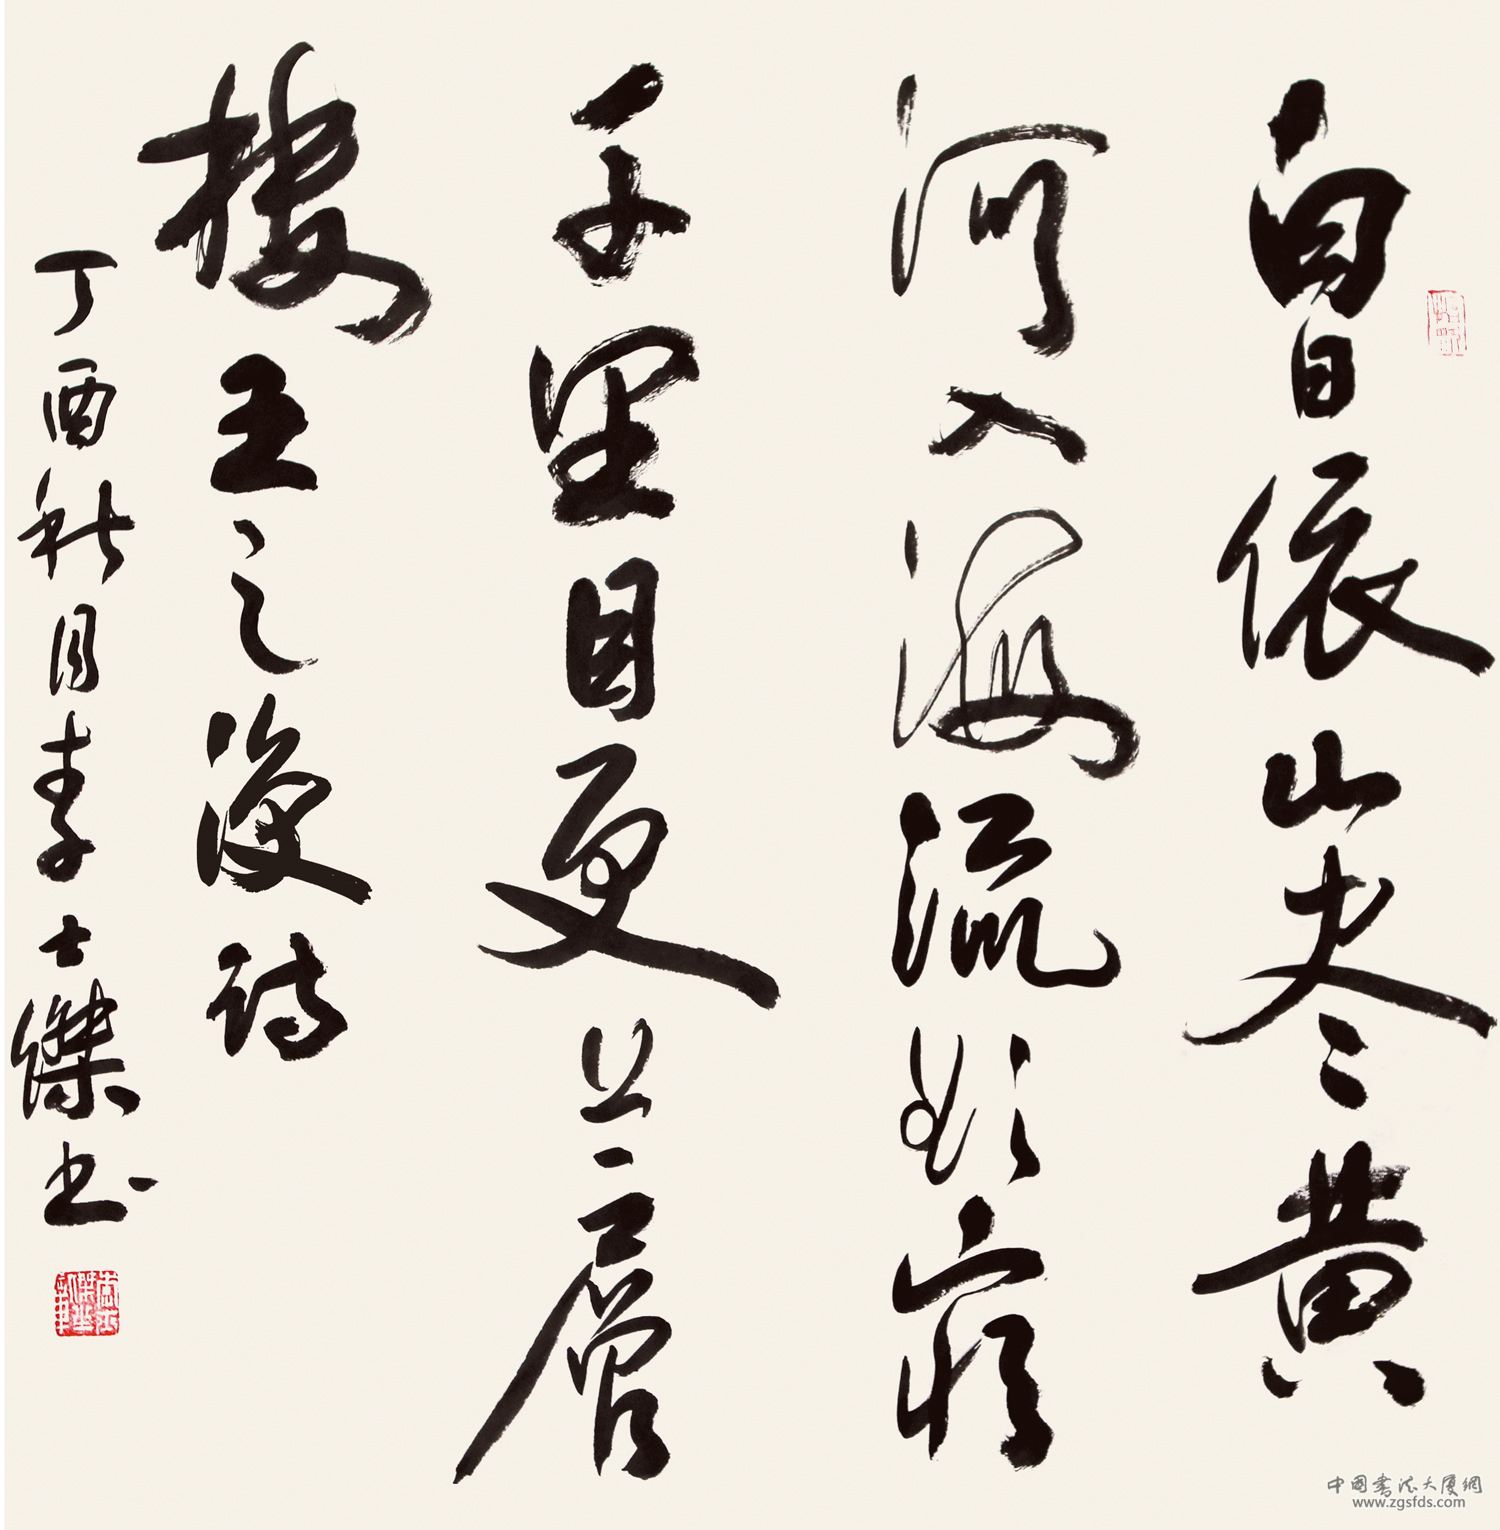 白日依山尽黄
河入海流欲窮
千里目更上一層
楼王之渙诗
丁酉秋月李士傑书
中國書法大厦網
www.zgsfds.com